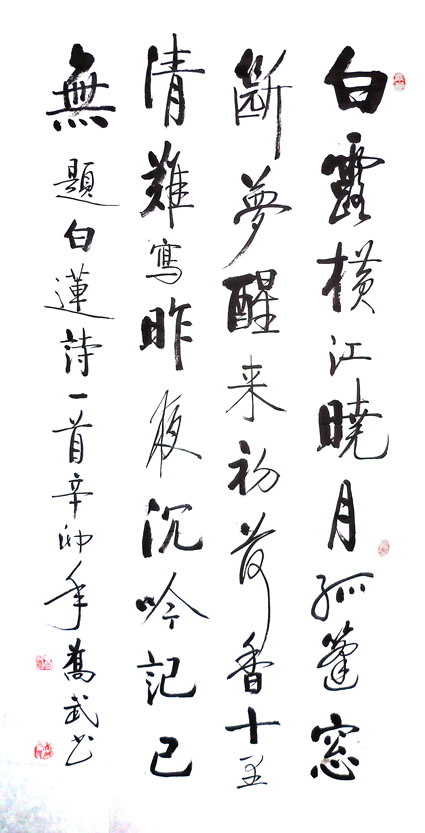 白露横江曉月孤篷窓
斷夢醒来初荷香十里
清難寫昨夜沉吟記已
無題白蓮詩一首辛卯年喬武书